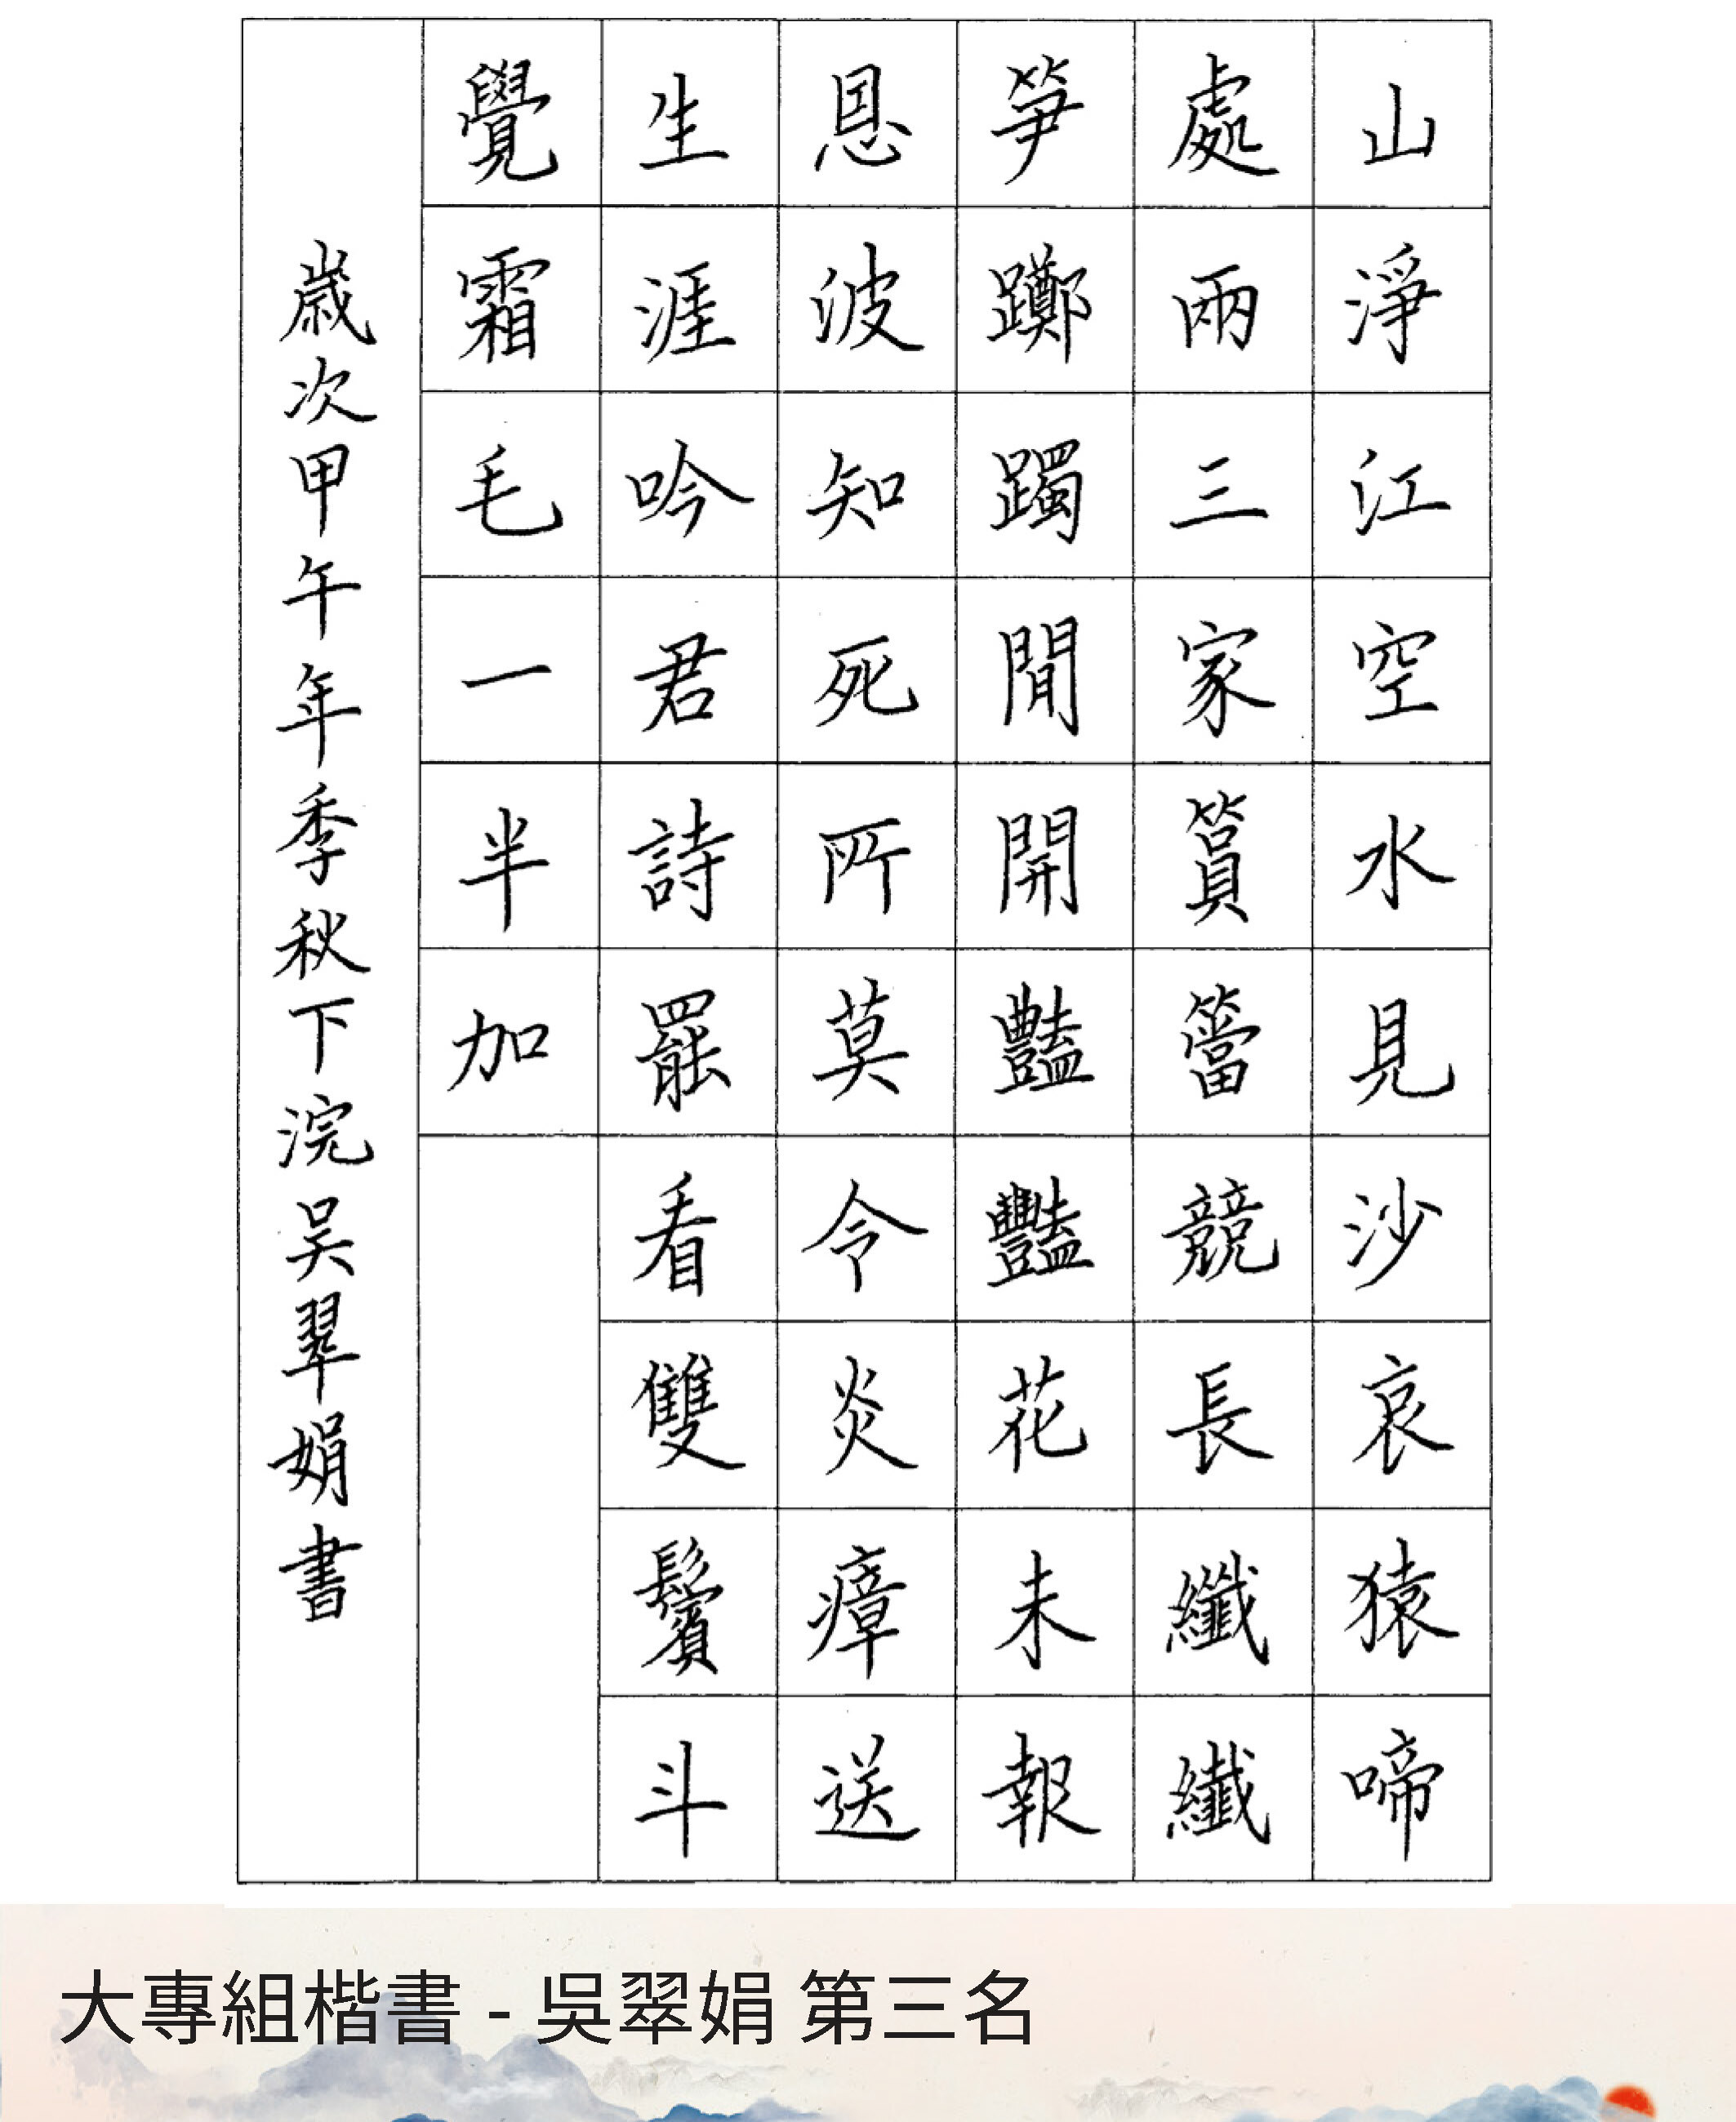 山淨江空水見沙哀猿啼
處兩三家篔簹競長纖纖
笋躑躅閒開豔豔花未報
恩波知死所莫令炎瘴送
生涯吟君詩罷看雙鬢斗
覺霜毛一半加
歲次甲午年季秋下浣吳翠娟書
大專組楷書 - 吳翠娟 第三名